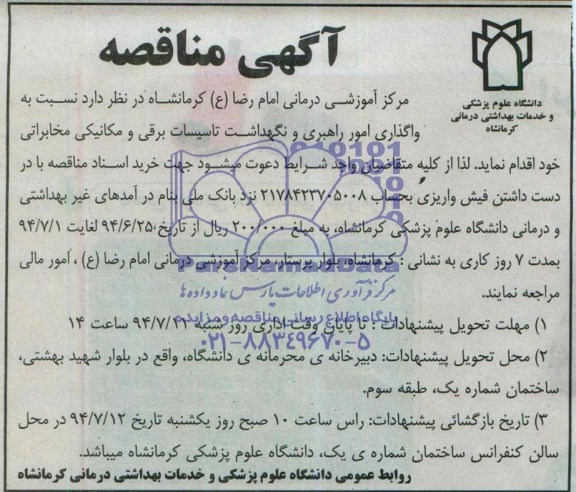 آگهی مناقصه
دانشگاه علوم پزشکی
و خدمات بهداشتی درمانی
کرمانشاه
مرکز آموزشی درمانی امام رضا (ع) کرمانشاه در نظر دارد نسبت به
واگذاری امور راهبری و نگهداشت تاسیسات برقی و مکانیکی مخابراتی
خود اقدام نماید. لذا از کلیه متقاضیان واجد شرایط دعوت میشود جهت خرید اسناد مناقصه با در
دست داشتن فیش واریزی بحساب ۲۱۷۸۴۲۳۷۰۵۰۰۸ نزد بانک ملی بنام در آمدهای غیر بهداشتی
و درمانی دانشگاه علوم پزشکی کرمانشاه، به مبلغ ۲۰۰/۰۰۰ ریال از تاریخ ۹۴/۶/۲۵ لغایت ۹۴/۷/۱
بمدت ۷ روز کاری به نشانی: کرمانشاه، بلوار پرستار، مرکز آموزشی درمانی امام رضا (ع)، امور مالی
مراجعه نمایند.
۱) مهلت تحویل پیشنهادات: تا پایان وقت اداری روز شنبه ۹۴/۷/۱۱ ساعت ۱۴
۲) محل تحویل پیشنهادات: دبیرخانه ی محرمانه ی دانشگاه، واقع در بلوار شهید بهشتی،
ساختمان شماره یک، طبقه سوم.
۳) تاریخ بازگشائی پیشنهادات: راس ساعت ۱۰ صبح روز یکشنبه تاریخ ۹۴/۷/۱۲ در محل
سالن کنفرانس ساختمان شماره ی یک، دانشگاه علوم پزشکی کرمانشاه میباشد.
روابط عمومی دانشگاه علوم پزشکی و خدمات بهداشتی درمانی کرمانشاه
ParsNamadData
مرکز فرآوری اطلاعات پارس نماد داده ها
پایگاه اطلاع رسانی مناقصه و مزایده
۰۲۱-۸۸۳۴۹۶۷۰-۵